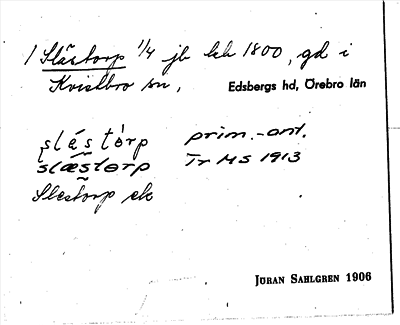 1 Slästorp 1/4 jb kh 1800, gd i
Kvistbro sn, Edsbergs hd, Örebro län
slástòrp prim.-ant.
slæstorp Tr MS 1913
Slestorp
JÖRAN SAHLGREN 1906